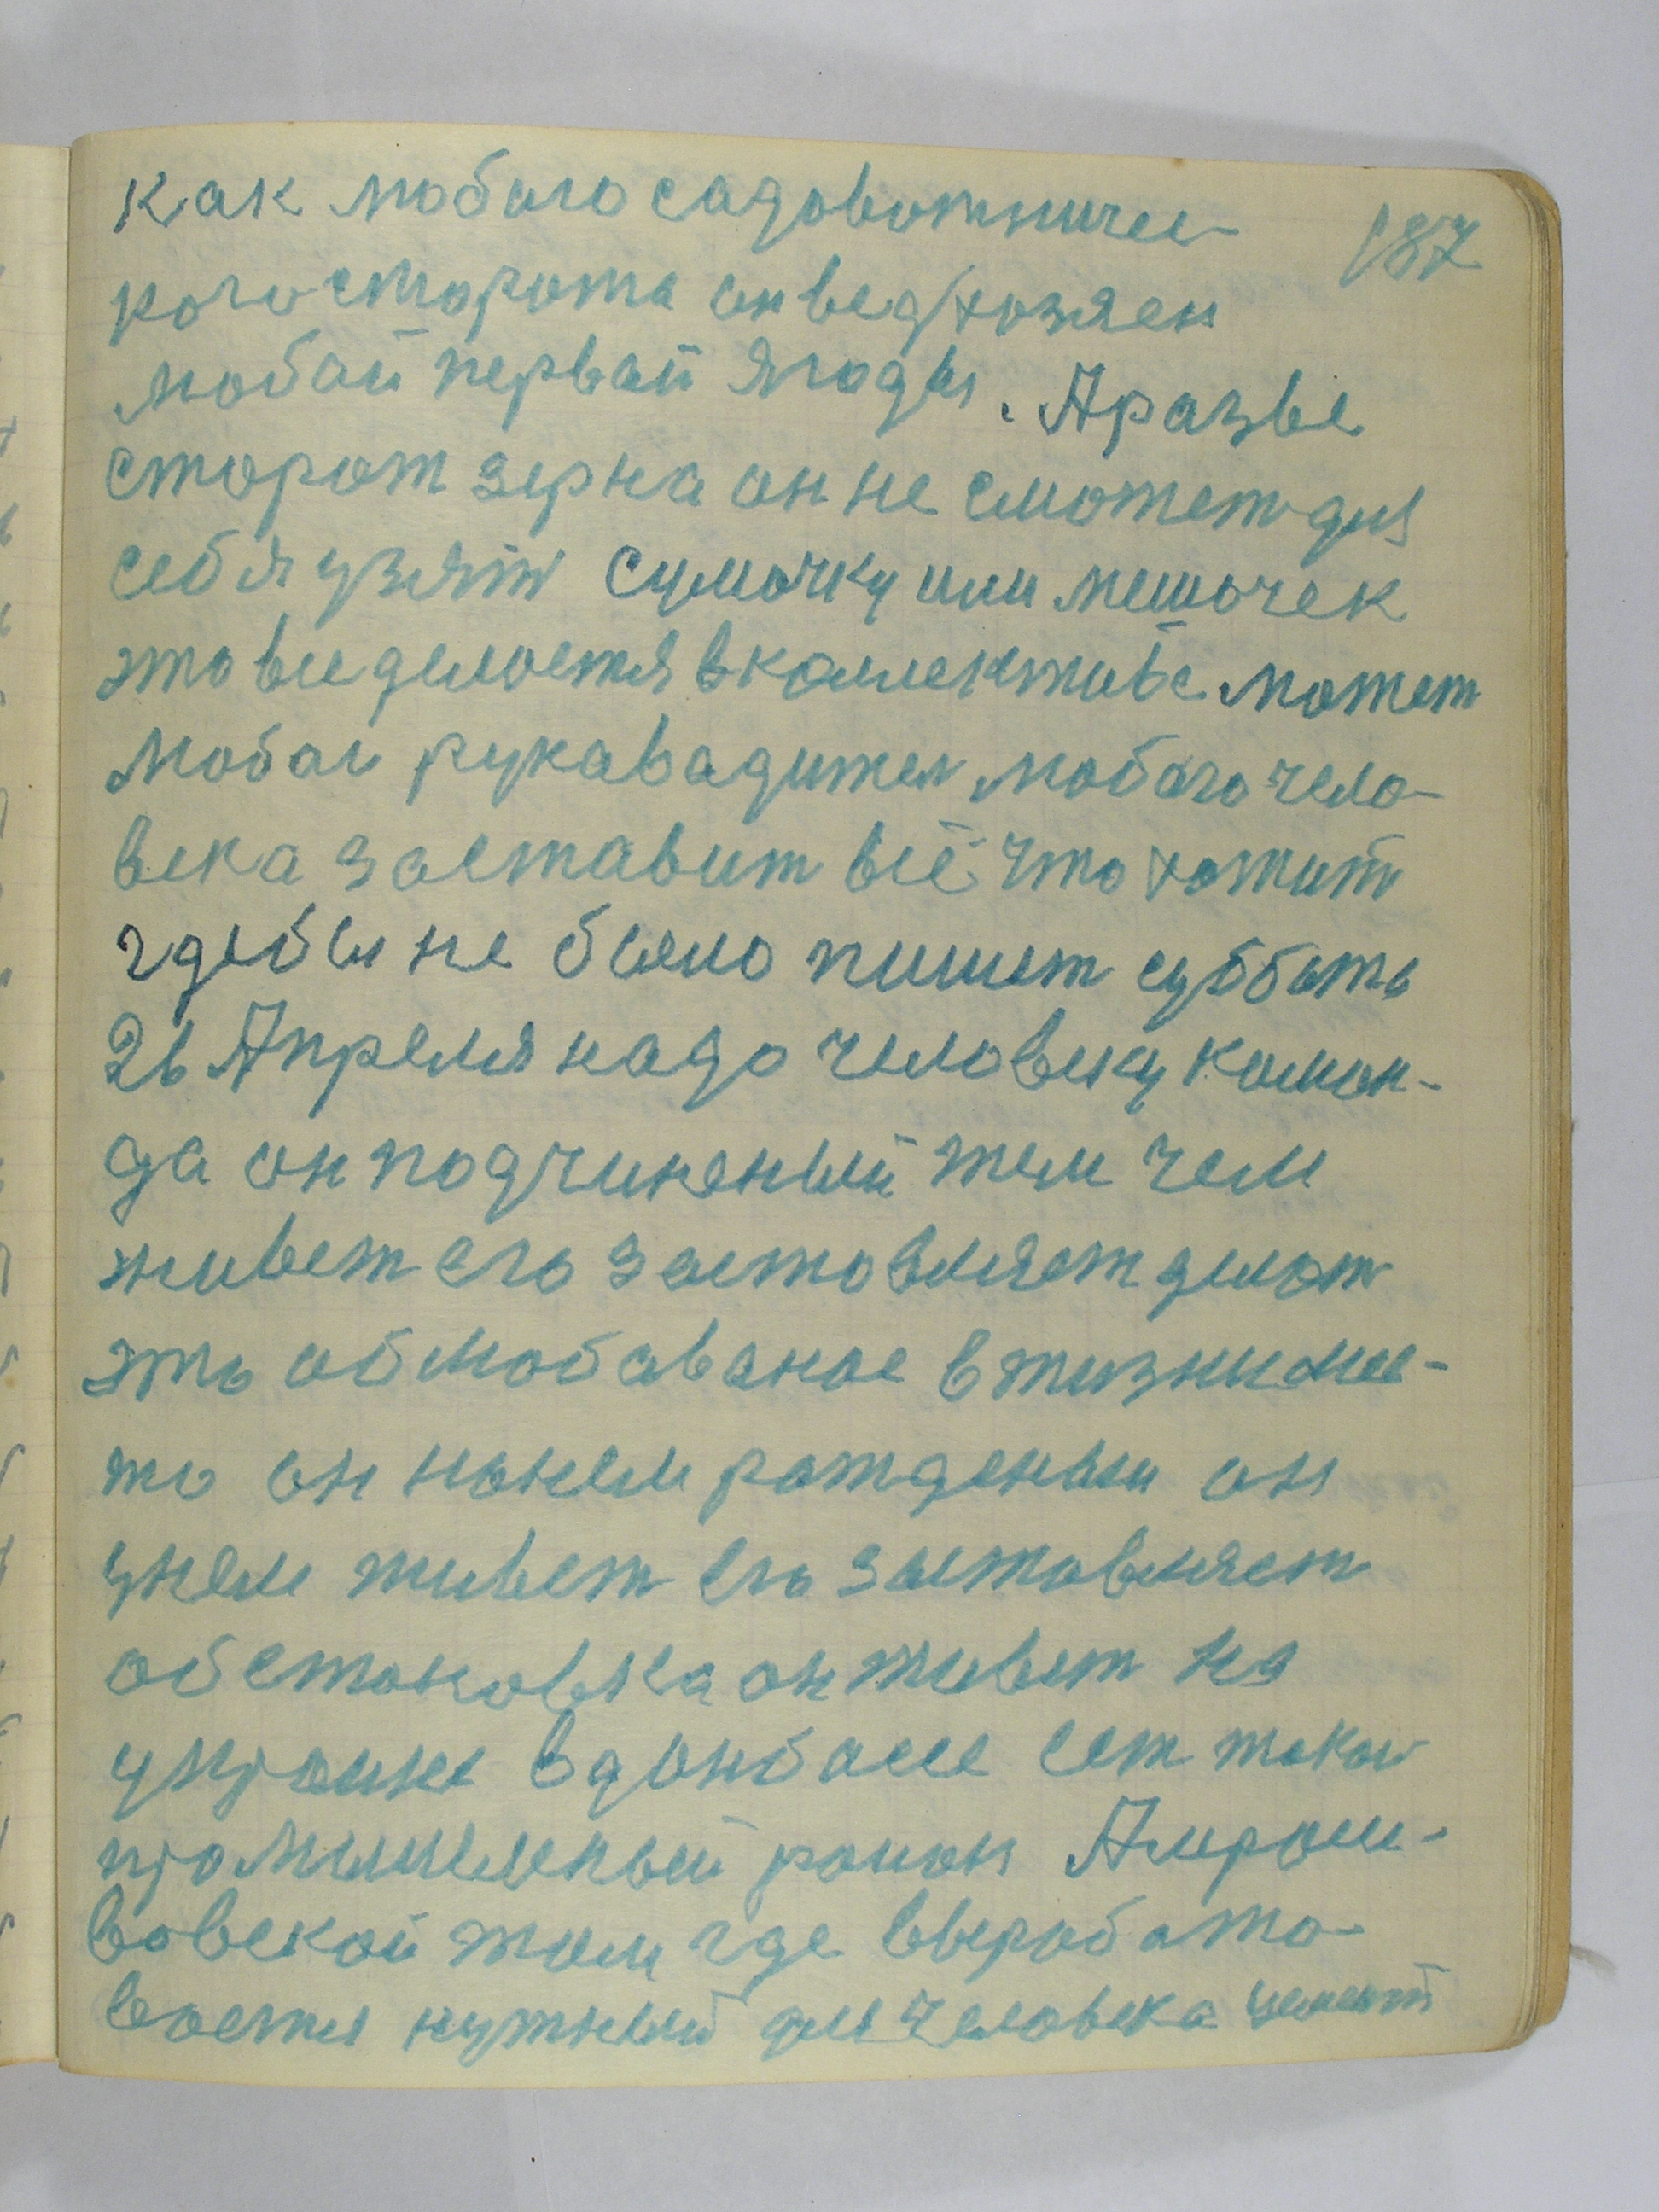 187
как любого садовотничес-
кого сторожа он ведь хозяен
любой первай ягоды. А разве
сторож зерна он не сможет для
себя узять сумочку или мешочек
это все делоется в коллективе может
любои рукавадител любого чело-
века заставит всё что хотит
где бы не было пишет суббота
26 Апреля надо человеку коман-
да он подчиненый тем чем
живет его заставляет делат
это облюбаваное в жизни мес-
то он нанем рожденыи он
унем живет его заставляет
обстановка он живет на
украине вдонбассе ест такои
промышленый раион Амроси-
вовской там где вырабато-
воется нужный для человека цемент